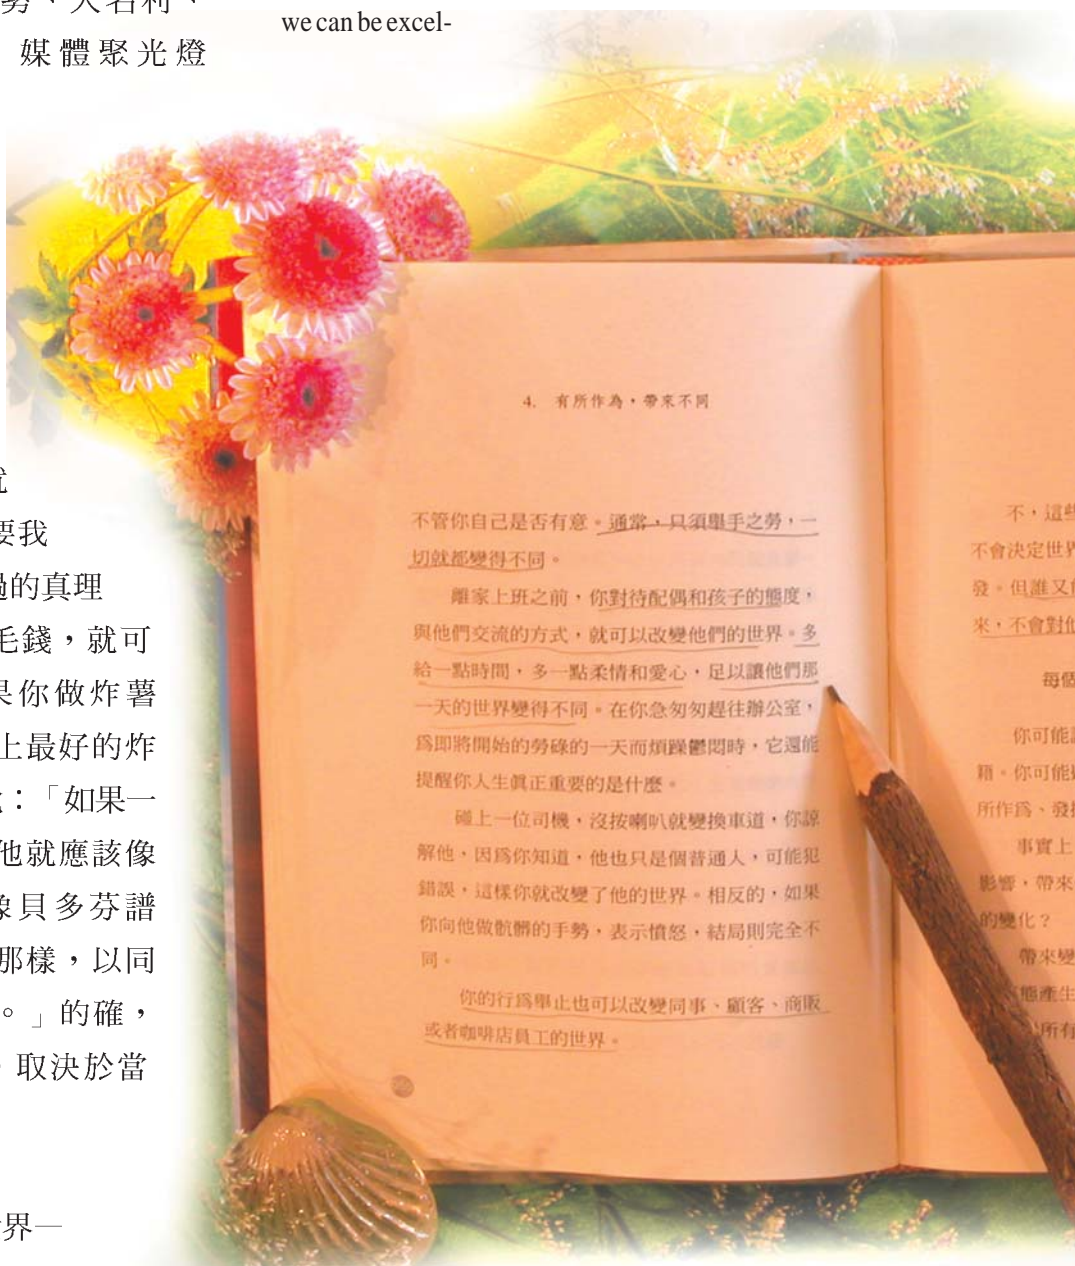 we can be excel-
媒體聚光燈
要我
的真理
毛錢，就可
果你做炸薯
上最好的炸
：「如果一
他就應該像
像貝多芬譜
那樣，以同
。」的確，
取決於當
界—
4. 有所作為，帶來不同
不管你自己是否有意。通常，只須舉手之勞，一
切就都變得不同。
離家上班之前，你對待配偶和孩子的態度，
與他們交流的方式，就可以改變他們的世界。多
給一點時間，多一點柔情和愛心，足以讓他們那
一天的世界變得不同。在你急匆匆趕往辦公室，
爲即將開始的勞碌的一天而煩躁鬱悶時，它還能
提醒你人生眞正重要的是什麼。
碰上一位司機，沒按喇叭就變換車道，你諒
解他，因爲你知道，他也只是個普通人，可能犯
錯誤，這樣你就改變了他的世界。相反的，如果
你向他做骯髒的手勢，表示憤怒，結局則完全不
同。
你的行爲舉止也可以改變同事、顧客、商販
或者咖啡店員工的世界。
不，這些
不會決定世界
發。但誰又
來，不會對他
每個
你可能
籍。你可能
所作爲、發
事實上
影響，帶來
的變化？
帶來變
態產生
所有